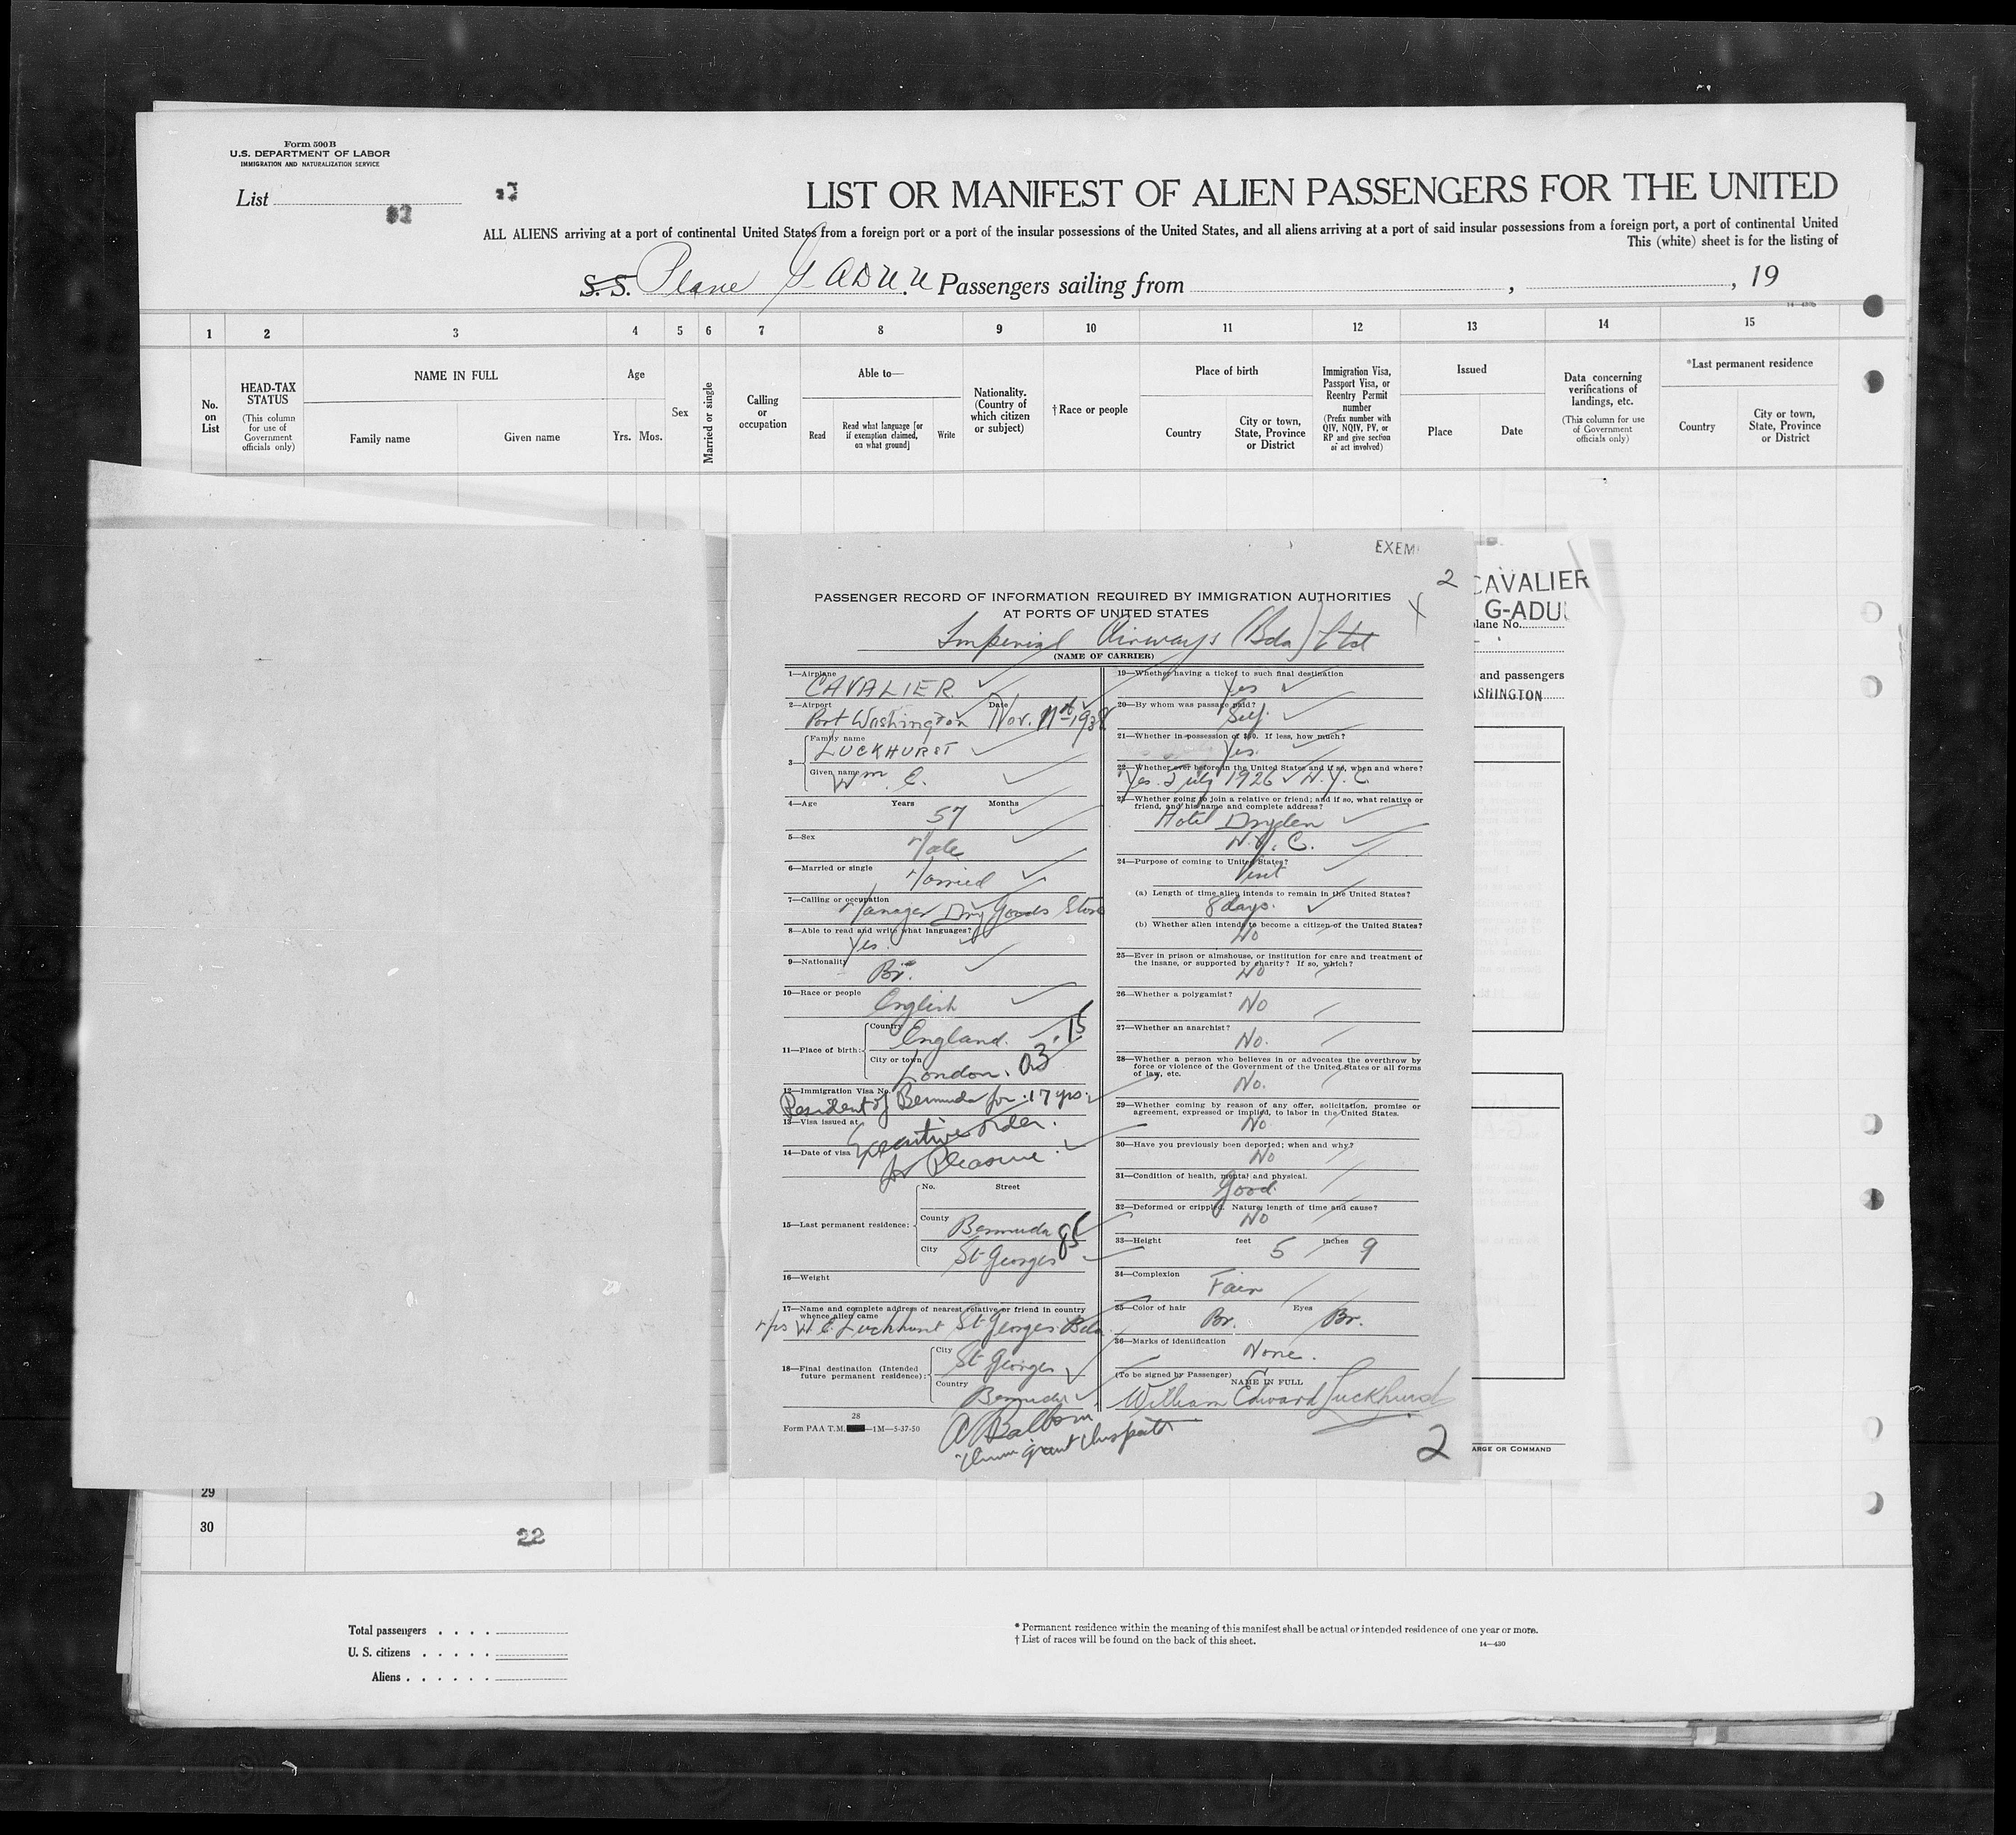 Form 500B
U.S. DEPARTMENT OF LABOR
IMMIGRATION AND NATURALIZATION SERVICE
List
LIST OR MANIFEST OF ALIEN PASSENGERS FOR THE UNITED
ALL ALIENS arriving at a port of continental United States from a foreign port or a port of the insular possessions of the United States, and all aliens arriving at a port of said insular possessions from a foreign port, a port of continental United
This (white) sheet is for the listing of
S. S. Plane G-ADUU Passengers sailing from , , 19
1 2 3 4 5 6 7 8 9 10 11 12 13 14 15
No. on List
HEAD-TAX STATUS
(This column for use of Government officials only)
NAME IN FULL
Family name Given name
Age
Yrs. Mos.
Sex
Married or single
Calling or occupation
Able to—
Read
Read what language [or if exemption claimed, on what ground]
Write
Nationality. (Country of which citizen or subject)
† Race or people
Place of birth
Country
City or town, State, Province or District
Immigration Visa, Passport Visa, or Reentry Permit number
(Prefix number with QIV, NQIV, PV, or RP and give section of act involved)
Issued
Place Date
Data concerning verifications of landings, etc.
(This column for use of Government officials only)
*Last permanent residence
Country
City or town, State, Province or District
EXEM
2
PASSENGER RECORD OF INFORMATION REQUIRED BY IMMIGRATION AUTHORITIES
AT PORTS OF UNITED STATES
Imperial Airways (Bda) Ltd
(NAME OF CARRIER)
1—Airplane
CAVALIER
2—Airport Date
Port Washington Nov. 11th 1938
3—
Family name
LUCKHURST
Given name
Wm. E.
4—Age Years Months
57
5—Sex
Male
6—Married or single
Married
7—Calling or occupation
Manager Dry Goods Store
8—Able to read and write what languages?
Yes.
9—Nationality
Br.
10—Race or people
English
11—Place of birth:
Country
England. .15
City or town
London. 03
12—Immigration Visa No.
Resident of Bermuda for 17 yrs.
13—Visa issued at
Executive order.
14—Date of visa
for Pleasure.
15—Last permanent residence:
No. Street
County
Bermuda 85
City
St Georges
16—Weight
17—Name and complete address of nearest relative or friend in country
whence alien came
Mrs W. E. Luckhurst St Georges Bda.
18—Final destination (Intended
future permanent residence):
City
St Georges
Country
Bermuda
28
Form PAA T.M. —1M—5-37-50
19—Whether having a ticket to such final destination
Yes
20—By whom was passage paid?
Self.
21—Whether in possession of $50. If less, how much?
Yes.
22—Whether ever before in the United States and if so, when and where?
Yes. July 1926 N.Y.C.
23—Whether going to join a relative or friend; and if so, what relative or
friend, and his name and complete address?
Hotel Dryden
N.Y.C.
24—Purpose of coming to United States?
Visit
(a) Length of time alien intends to remain in the United States?
8 days.
(b) Whether alien intends to become a citizen of the United States?
No
25—Ever in prison or almshouse, or institution for care and treatment of
the insane, or supported by charity? If so, which?
No
26—Whether a polygamist?
No
27—Whether an anarchist?
No.
28—Whether a person who believes in or advocates the overthrow by
force or violence of the Government of the United States or all forms
of law, etc.
No.
29—Whether coming by reason of any offer, solicitation, promise or
agreement, expressed or implied, to labor in the United States.
No.
30—Have you previously been deported; when and why?
No
31—Condition of health, mental and physical.
Good.
32—Deformed or crippled. Nature, length of time and cause?
No
33—Height feet 5 inches 9
34—Complexion
Fair
35—Color of hair Eyes
Br. Br.
36—Marks of identification
None.
(To be signed by Passenger)
NAME IN FULL
William Edward Luckhurst
2
CAVALIER
G-ADU
plane No.
and passengers
ASHINGTON
ARGE OR COMMAND
29
30
22
Total passengers
U. S. citizens
Aliens
* Permanent residence within the meaning of this manifest shall be actual or intended residence of one year or more.
† List of races will be found on the back of this sheet.
14—430